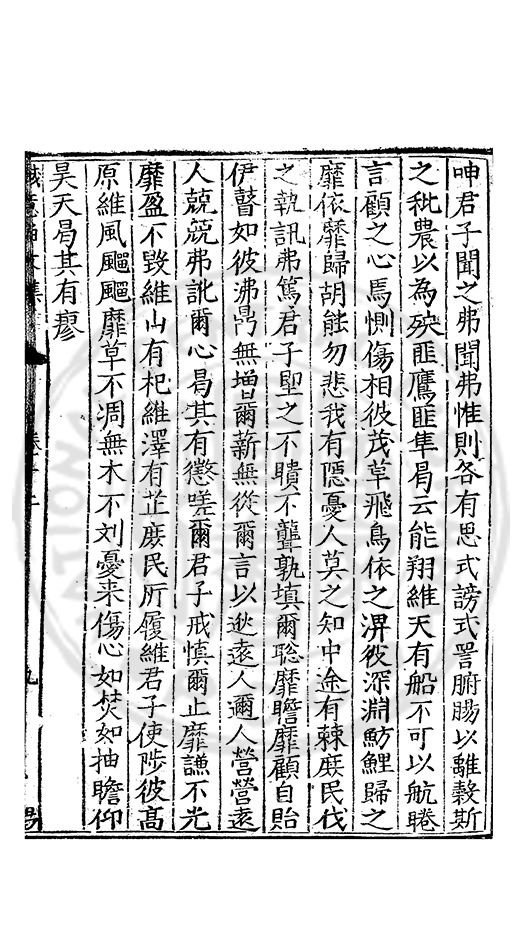 呻君子聞之弗聞弗惟則各有思式謗式詈腑腸以離縠斯
之秕農以為殃匪鷹匪隼曷云能翔維天有船不可以航睠
言顧之心焉惻傷相彼茂草飛鳥依之淠彼深淵魴鯉歸之
靡依靡歸胡能勿悲我有隱憂人莫之知中途有棘庶民伐
之執訊弗篤君子聖之不聵不聾孰填爾聰靡瞻靡顧自貽
伊瞽如彼沸鼎無增爾薪無從爾言以逖遠人邇人營營遠
人兢兢弗訛爾心曷其有懲嗟爾君子戒慎爾止靡謙不光
靡盈不毀維山有杞維澤有芷庶民所履維君子使陟彼高
原維風飄飄靡草不凋無木不刘憂来傷心如焚如抽瞻仰
昊天曷其有瘳